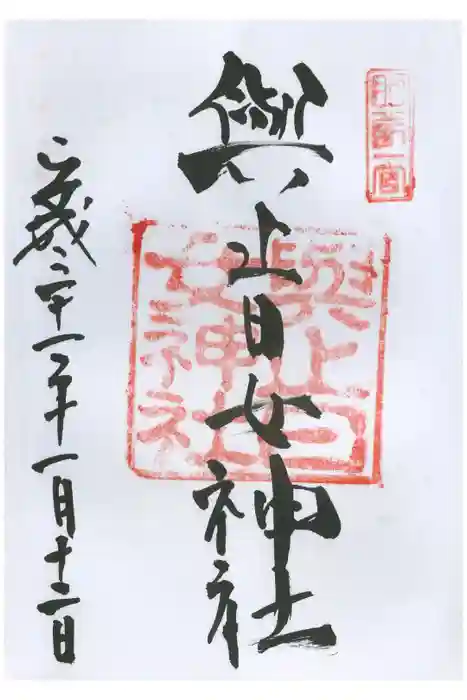 肥前一宮
與止日女神社
與止日女神社
平成二十一年一月十二日